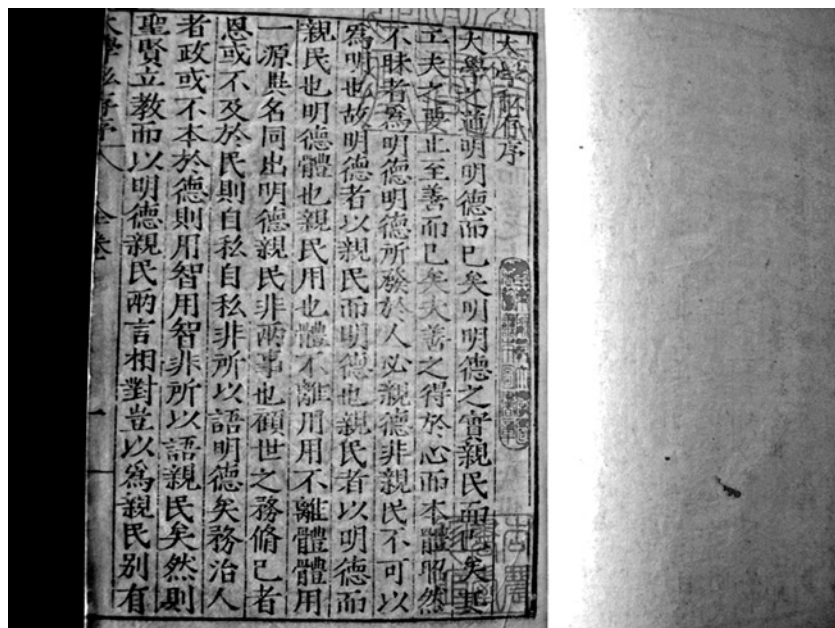 大學私存序
大學之道明明德而已矣明明德之實親民而已矣其
工夫之要止至善而已矣夫善之得於心而本體昭然
不昧者爲明德明德所發於人必親德非親民不可以
爲明也故明德者以親民而明德也親民者以明德而
親民也明德體也親民用也體不離用用不離體體用
一源其名同出明德親民非兩事也顧世之務脩己者
恩或不及於民則自私自私非所以語明德矣務治人
者政或不本於德則用智用智非所以語親民矣然則
聖賢立教而以明德親民兩言相對豈以爲親民别有
大學私存序 全卷 一